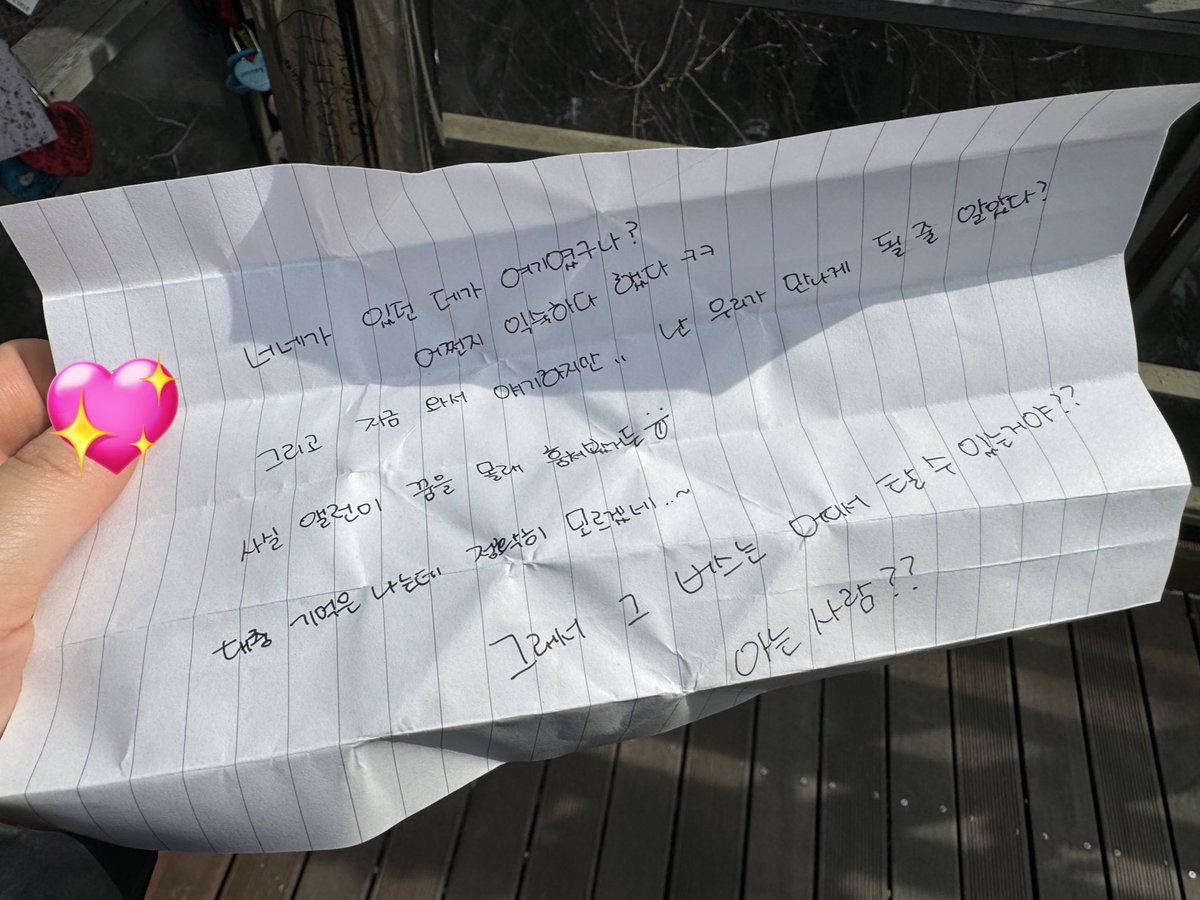 너네가 있던 데가 여기였구나?
어쩐지 익숙하다 했다 ㅋㅋ
그리고 지금 와서 얘기하지만 " 난 우리가 만나게 될 줄 알았다?
사실 앨런이 꿈을 몰래 훔쳐봤거든
대충 기억은 나는데 정확히 모르겠네..~
그래서 그 버스는 어디서 탈 수 있는거야??
아는 사람??